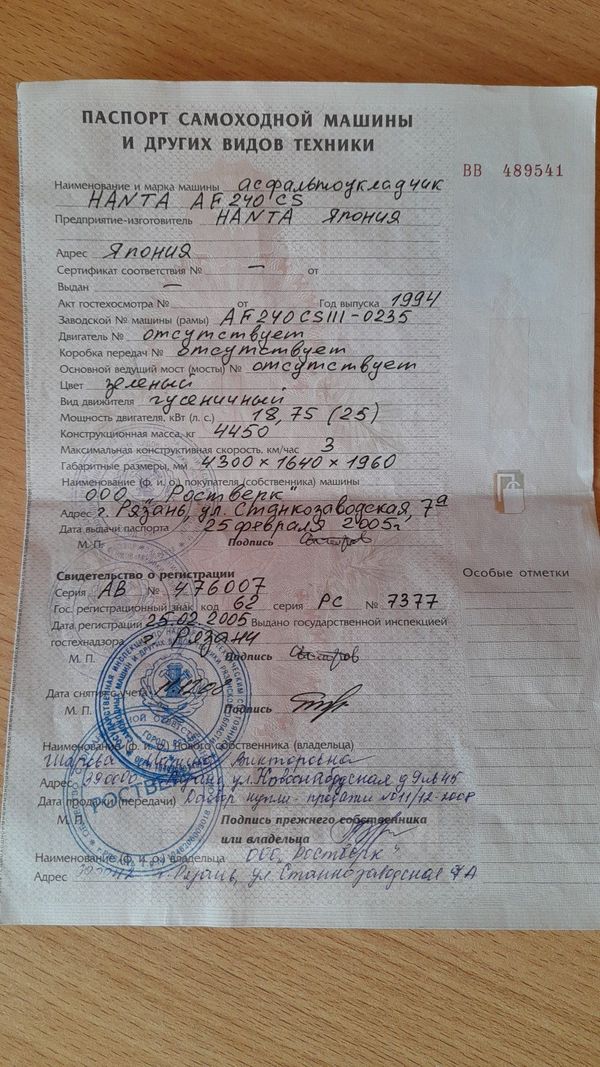 ПАСПОРТ САМОХОДНОЙ МАШИНЫ
И ДРУГИХ ВИДОВ ТЕХНИКИ
ВВ 489541
Наименование и марка машины асфальтоукладчик
HANTA AF 240 CS
Предприятие-изготовитель HANTA Япония
Адрес Япония
Сертификат соответствия № — от
Выдан —
Акт гостехосмотра № от Год выпуска 1994
Заводской № машины (рамы) AF240CSIII-0235
Двигатель № отсутствует
Коробка передач № отсутствует
Основной ведущий мост (мосты) № отсутствует
Цвет зеленый
Вид движителя гусеничный
Мощность двигателя, кВт (л. с.) 18,75 (25)
Конструкционная масса, кг 4450
Максимальная конструктивная скорость, км/час 3
Габаритные размеры, мм 4300×1640×1960
Наименование (ф. и. о.) покупателя (собственника) машины
ООО „Ростверк"
Адрес г. Рязань, ул. Станкозаводская, 7а
Дата выдачи паспорта 25 февраля 2005г
М. П. Подпись
Свидетельство о регистрации
Особые отметки
Серия АВ № 476007
Гос. регистрационный знак код 62 серия РС № 7377
Дата регистрации 25.02.2005 Выдано государственной инспекцией
гостехнадзора г. Рязани
М. П. Подпись
Дата снятия с учета
М. П. Подпись
Наименование (ф. и. о.) нового собственника (владельца)
Викторовна
Адрес 390000
Дата продажи (передачи) Договор купли-продажи №011/12-2008
М. П. Подпись прежнего собственника
или владельца
Наименование (ф. и. о.) владельца ООО „Ростверк"
Адрес г. Рязань, ул. Станкозаводская 7А
РОСТВЕРК